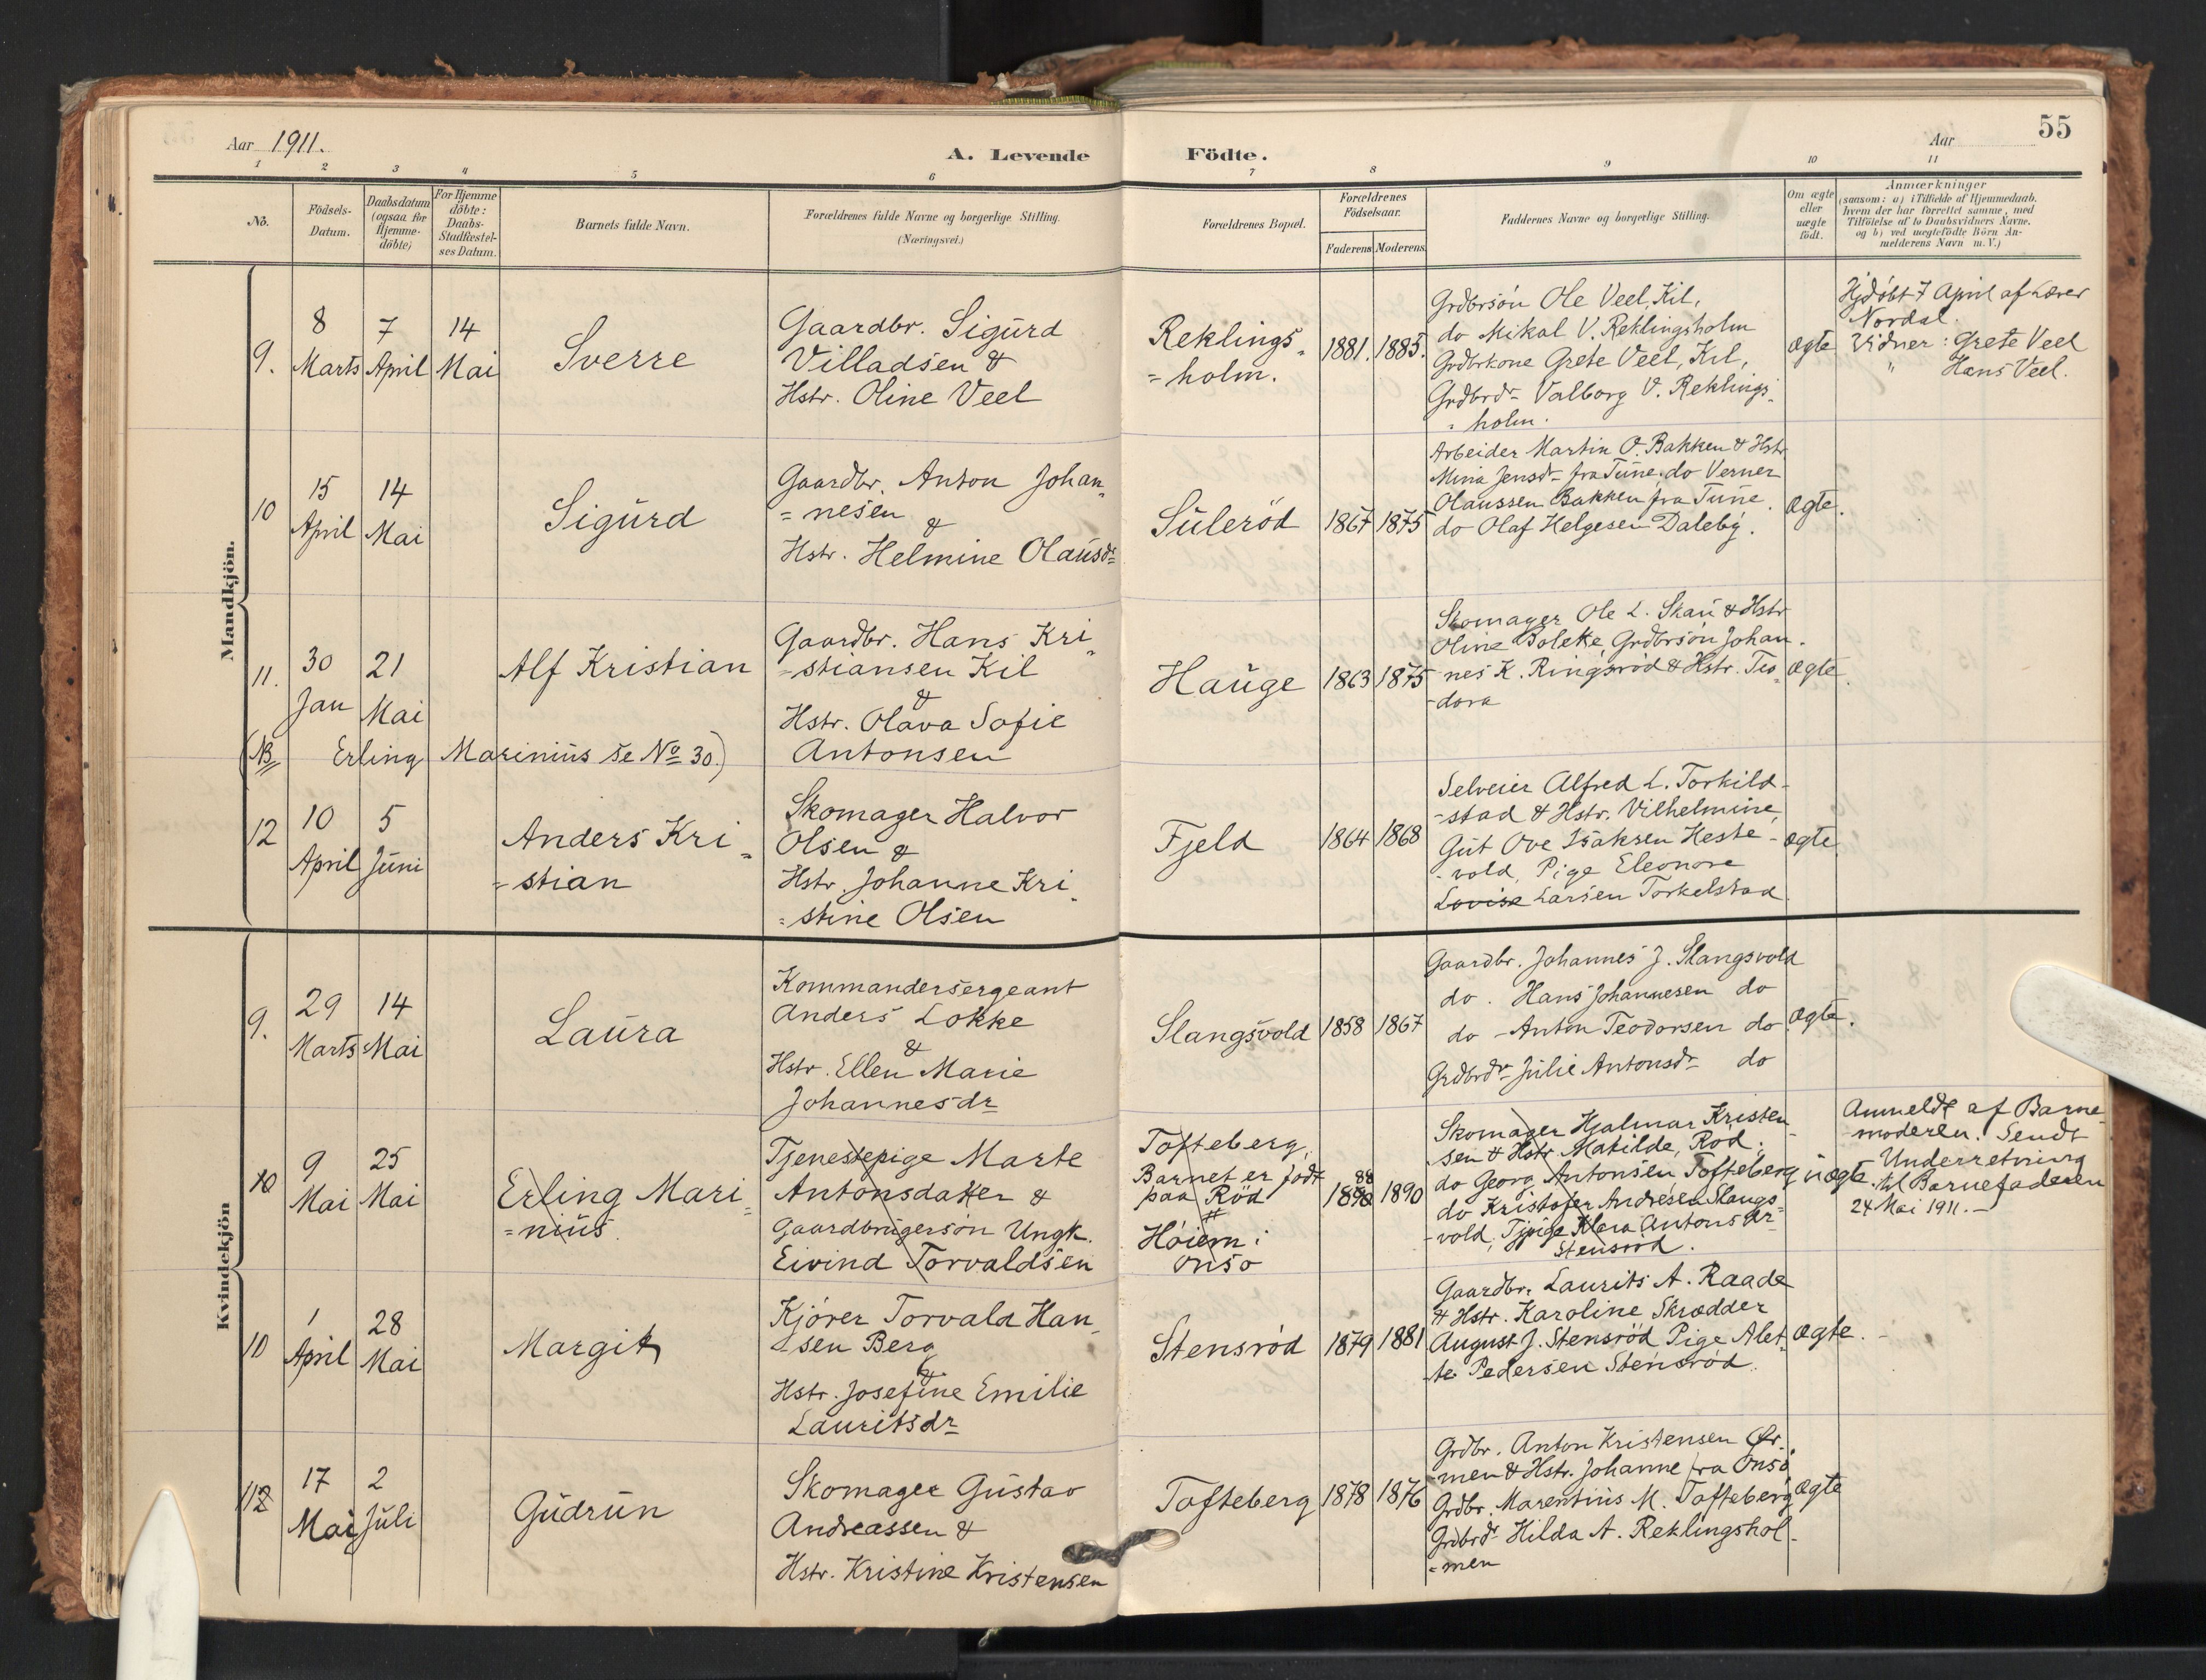 Aar 1911.
A. Levende
Födte.
Aar
55
1 2 3 4 5 6 7 8 9 10 11
No.
Födsels-
Datum.
Daabsdatum
(ogsaa for
Hjemme-
döbte)
For Hjemme
döbte:
Daabs-
Stadfæstel-
ses Datum.
Barnets fulde Navn.
Forældrenes fulde Navne og borgerlige Stilling.
(Næringsvei.)
Forældrenes Bopæl.
Forældrenes
Födselsaar.
Faderens Moderens
Faddernes Navne og borgerlige Stilling.
Om ægte
eller
uægte
födt.
Anmærkninger
(saasom: a) i Tilfælde af Hjemmedaab.
hvem der har forrettet samme, med
Tilföielse af to Daabsvidners Navne.
og b) ved uægtefödte Börn An-
melderens Navn m. V.)
Mandkjön.
9.
8
Marts
7
April
14
Mai
Sverre
Gaardbr. Sigurd
Villadsen &
Hstr. Oline Veel
Reklings-
=holm.
1881. 1885.
Grdbrsön Ole Veel, Kil,
do Mikal V. Reklingsholm
Grdbrkone Grete Veel, Kil,
Grdbrdr Valborg V. Reklings-
=holm.
ægte
Hjdöbt 7 April af Lærer
Nordal.
Vidner: Grete Veel
" Hans Veel.
10
15
April
14
Mai
Sigurd
Gaardbr. Anton Johan-
=nesen
&
Hstr. Helmine Olausdr
Suleröd
1867 1875
Arbeider Martin O. Bakken & Hstr
Mina Jensdr fra Tune, do Verner
Olaussen Bakken fra Tune.
do Olaf Helgesen Daleby.
ægte.
11.
30
Jan
21
Mai
Alf Kristian
Gaardbr. Hans Kri-
=stiansen Kil
&
Hstr. Olava Sofie
Antonsen
Hauge
1863 1875
Skomager Ole L. Skau & Hstr
Oline Bolette, Grdbrsön Johan-
nes K. Ringsröd & Hstr. Teo-
-dora
ægte.
(NB Erling Marinius se No 30.)
12
10
April
5
Juni
Anders Kri-
=stian
Skomager Halvor
Olsen &
Hstr. Johanne Kri-
=stine Olsen
Fjeld
1864 1868
Selveier Alfred L. Torkild-
-stad & Hstr. Vilhelmine,
Gut Ove Isaksen Heste-
-vold, Pige Eleonore
Lovise Larsen Torkelstad
ægte.
Kvindekjön
9.
29
Marts
14
Mai
Laura
Kommandersergeant
Anders Lokke
&
Hstr. Ellen Marie
Johannesdr
Slangsvold
1858 1867
Gaardbr. Johannes J. Slangsvold
do. Hans Johannesen do
do - Anton Teodorsen do
Grdbrdr Julie Antonsdr do
ægte.
10
9
Mai
25
Mai
Erling Mari-
=nius.
Tjenestepige Marte
Antonsdatter &
Gaardbrugersön Ungk.
Eivind Torvaldsen
Tofteberg,
Barnet er födt
paa Röd
#
Höiem i
Onsö
88
1890 1890
Skomager Hjalmar Kristen-
sen & Hstr Matilde, Rød.
do Georg Antonsen Tofteberg
do Kristofer Andresen Slangs-
-vold, Tjpige Klara Antonsdr
Stensröd.
uægte.
Anmeldt af Barne-
moderen. Sendt
Underretning
til Barnefaderen
24 Mai 1911.-
10
1
April
28
Mai
Margit
Kjörer Torvald Han-
=sen Berg
&
Hstr. Josefine Emilie
Lauritsdr
Stensröd
1879 1881
Gaardbr. Laurits A. Raade
& Hstr. Karoline Skrædder
August J. Stensröd Pige Alet-
-te Pedersen Stensröd.
ægte.
112
17
Mai
2
Juli
Gudrun
Skomager Gustav
Andreassen &
Hstr. Kristine Kristensen
Tofteberg
1878 1876
Grdbr. Anton Kristensen Ør-
-men & Hstr. Johanne fra Onsö,
Grdbr. Marentius M. Tofteberg,
Grdbrdr Hilda A. Reklingshol-
=men
ægte